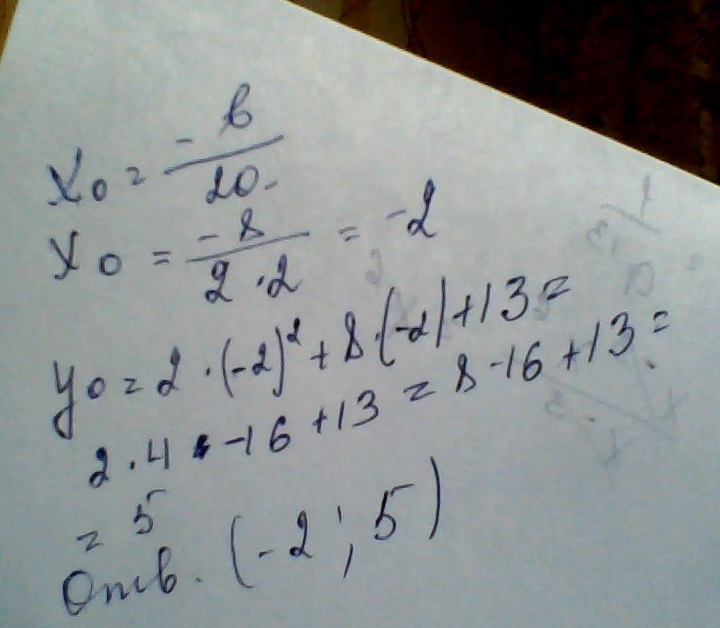 x₀ = -в/2a
x₀ = -8/2·2 = -2
y₀ = 2·(-2)² + 8·(-2) + 13 =
2·4 -16 + 13 = 8 -16 + 13 =
= 5
Отв. (-2; 5)